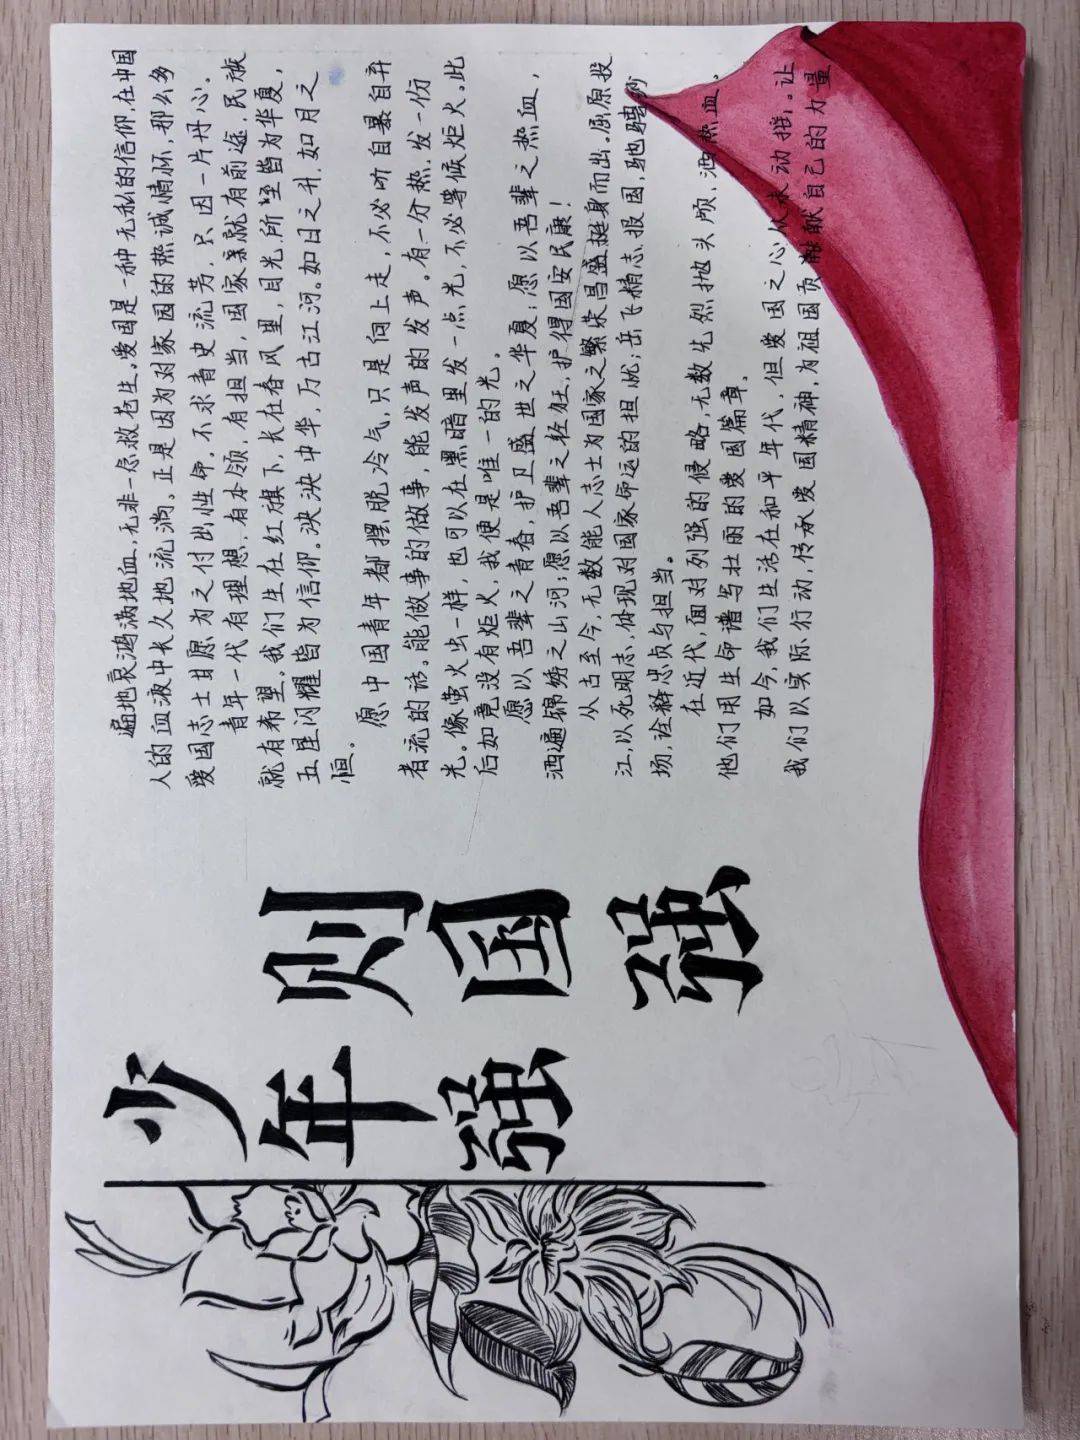 少年强
则国强
遍地哀鸿满地血,无非一念救苍生。爱国是一种无私的信仰,在中国
人的血液中长久地流淌。正是因为对家园的热诚情怀,那么多
爱国志士甘愿为之付出性命,不求青史流芳,只因一片丹心。
青年一代有理想,有本领,有担当,国家就有前途,民族
就有希望。我们生在红旗下,长在春风里,目光所至皆为华夏,
五星闪耀皆为信仰。泱泱中华,万古江河。如日之升,如月之
恒。
愿中国青年都摆脱冷气,只是向上走,不必听自暴自弃
者流的话。能做事的做事,能发声的发声。有一分热,发一份
光。像萤火虫一样,也可以在黑暗里发一点光,不必等候炬火。此
后如竟没有炬火,我便是唯一的光。
愿以吾辈之青春,护卫盛世之华夏;愿以吾辈之热血,
洒遍锦绣之山河;愿以吾辈之轻狂,护得国安民康!
从古至今,无数能人志士为国家之繁荣昌盛挺身而出。屈原投
江,以死明志,体现对国家命运的担忧;岳飞精忠报国,驰骋沙
场,诠释忠贞与担当。
在近代,面对列强的侵略,无数先烈抛头颅,洒热血。
他们用生命谱写壮丽的爱国篇章。
如今,我们生活在和平年代,但爱国之心从未动摇。让
我们以实际行动,传承爱国精神,为祖国贡献自己的力量